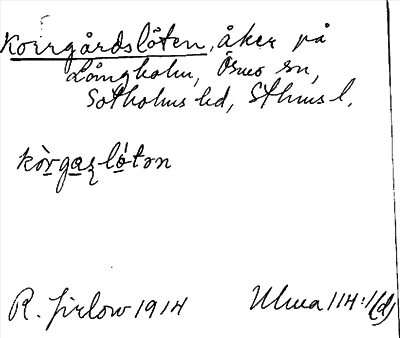 Korrgårdslöten, åker på
Långholm, Ösmo sn,
Sotholms hd, Sthms l.
kòrgaʂlö́tən
R. Jirlow 1914 Ulma 114:1(d)